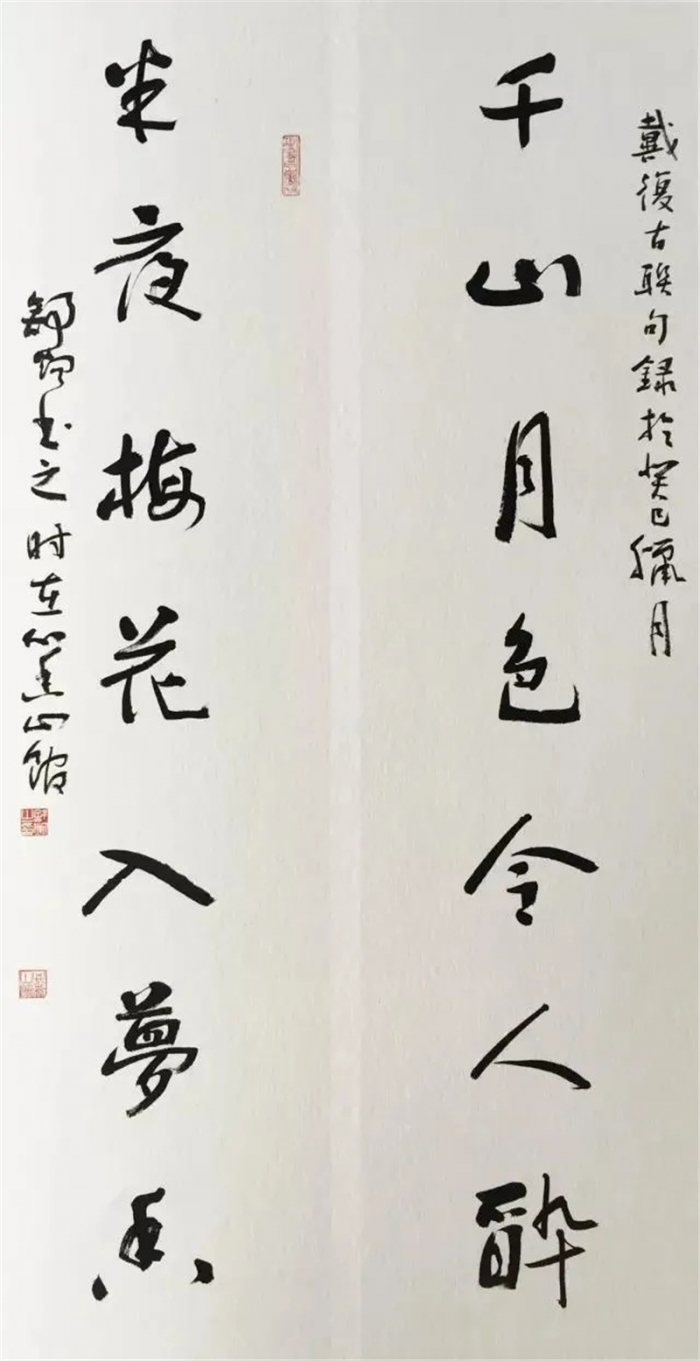 戴復古联句録於癸巳臘月
千山月色令人醉
半夜梅花入夢香
书之 时在 山館